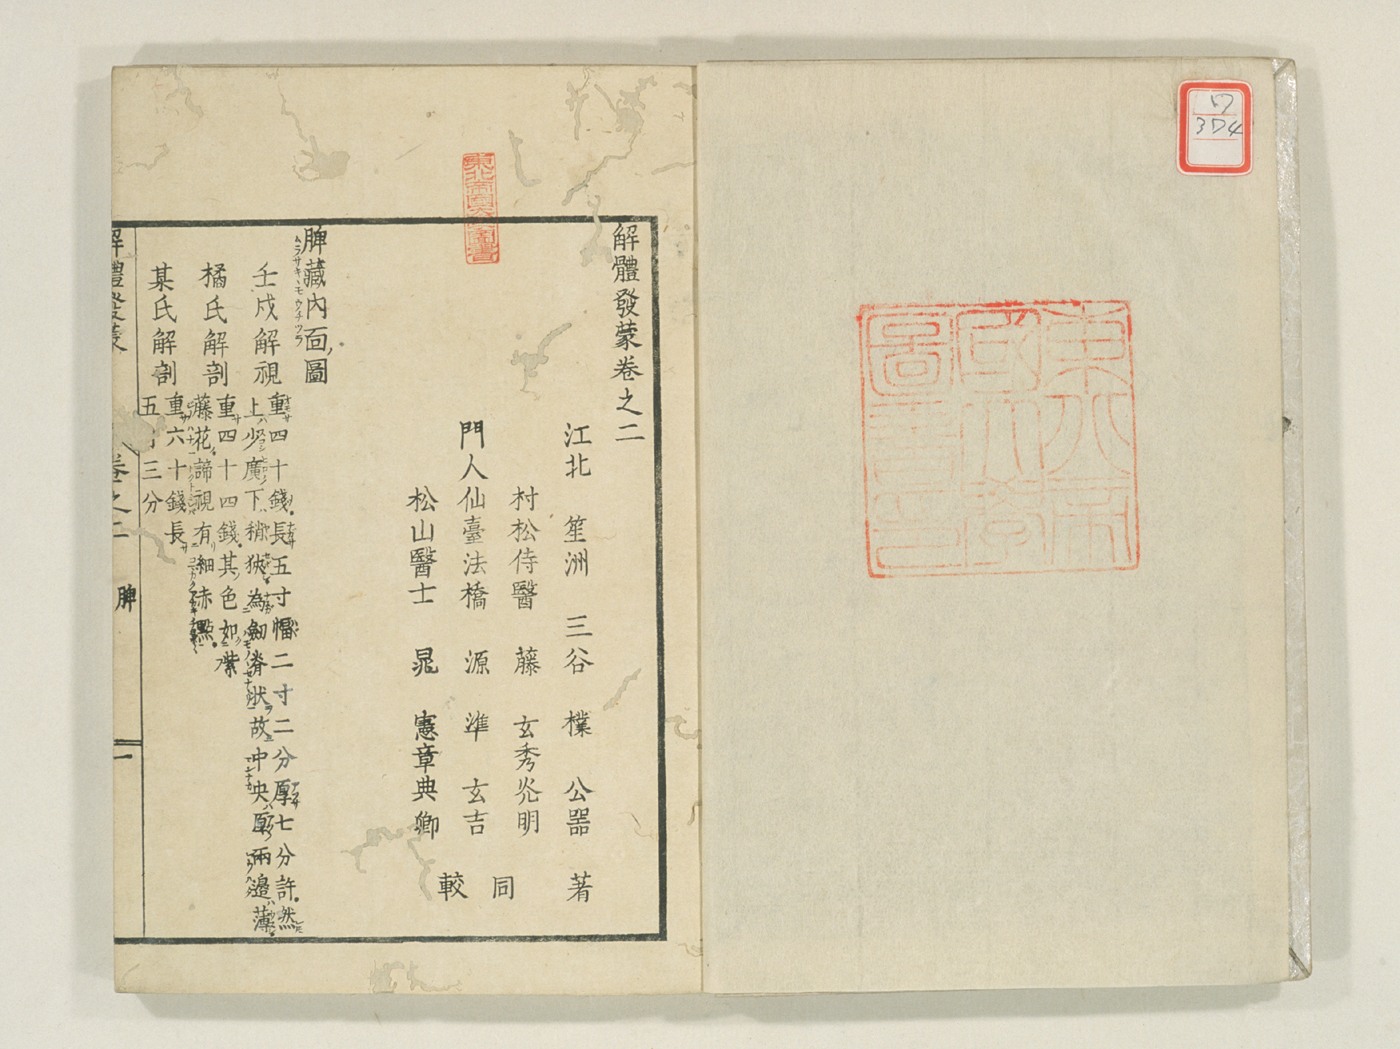 ワ
3D4
東北帝
國大學
圖書印
東北帝國大學圖書
解體發蒙卷之二
江北 笙洲 三谷 樸 公器 著
村松侍醫 藤 玄秀 光明
門人仙臺法橋 源 準 玄吉 同
松山醫士 晁 憲章 典卿 較
脾藏內面圖
壬戌解視
重四十錢長五寸幅二寸二分厚七分許然
上少廣下稍狹為劒脊狀故中央厚兩邊薄
橘氏解剖
重四十四錢其色如紫
藤花諦視有細赤點
某氏解剖
重六十錢長
五寸三分
解體發蒙 卷之二 脾 一